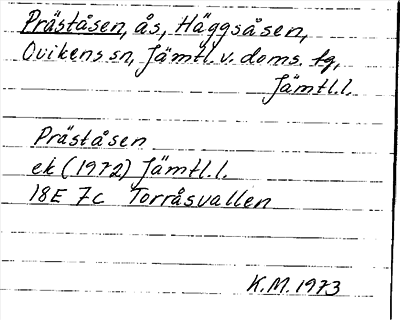 Präståsen, ås, Häggsåsen,
Ovikens sn, Jämtl. v. doms. tg,
Jämtl.l.
Präståsen
ek (1972) Jämtl.l.
18E 7c Torråsvallen
K.M. 1973